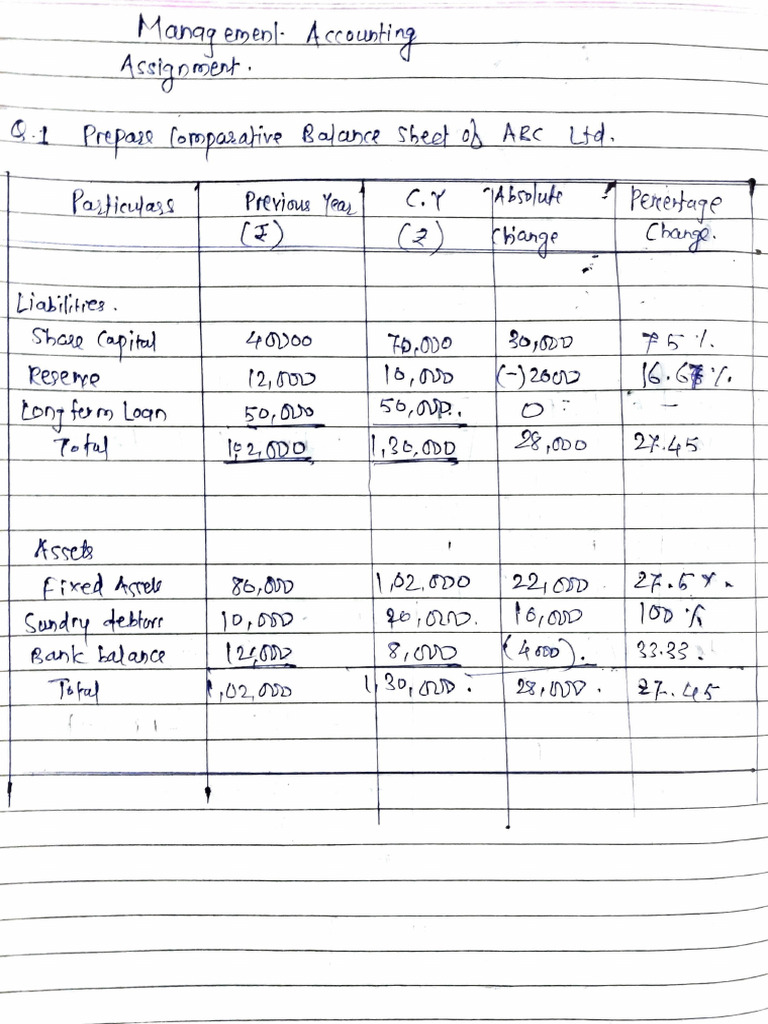 Management Accounting
Assignment.
Q.1 Prepare Comparative Balance Sheet of ABC Ltd.
Particulars Previous Year C.Y Absolute Percentage
(₹) (₹) Change Change.
Liabilities.
Share Capital 40000 70,000 30,000 75%
Reserve 12,000 10,000 (-)2000 16.67%
Long term Loan 50,000 50,000. 0 -
Total 1,02,000 1,30,000 28,000 27.45
Assets
Fixed Assets 80,000 1,02,000 22,000 27.5%
Sundry debtors 10,000 20,000. 10,000 100%
Bank balance 12,000 8,000 (4000). 33.33.
Total 1,02,000 1,30,000. 28,000. 27.45